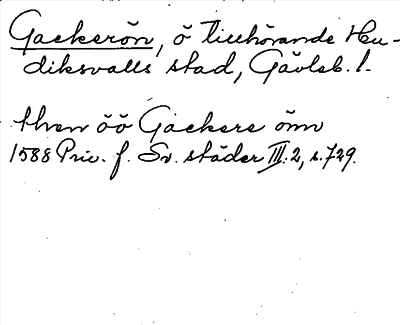 Gackerön, ö tillhörande Hu-
diksvalls stad, Gävleb. l.
then öö Gackere önn
1588 Priv. f. Sv. städer III:2, s. 729.